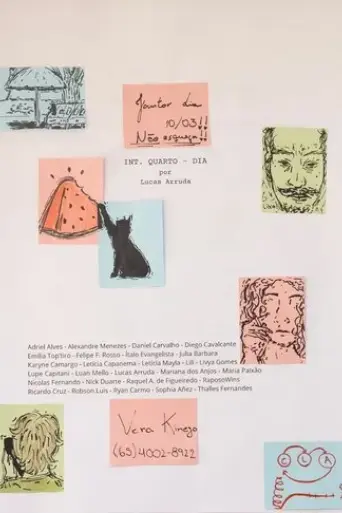 Jantar dia
10/03!!
Não esqueça!!
INT. QUARTO - DIA
por
Lucas Arruda
Adriel Alves - Alexandre Menezes - Daniel Carvalho - Diego Cavalcante
Emilia Top'tiro - Felipe F. Rosso - Ítalo Evangelista - Julia Barbara
Karyne Camargo - Letícia Capanema - Letícia Mayla - Lili - Livya Gomes
Lupe Capitani - Luan Mello - Lucas Arruda - Mariana dos Anjos - Maria Paixão
Nicolas Fernando - Nick Duarte - Raquel A. de Figueiredo - RaposoWins
Ricardo Cruz - Robson Luis - Ryan Carmo - Sophia Añez - Thalles Fernandes
Vera Kinego
(65) 4002-8922
C L A